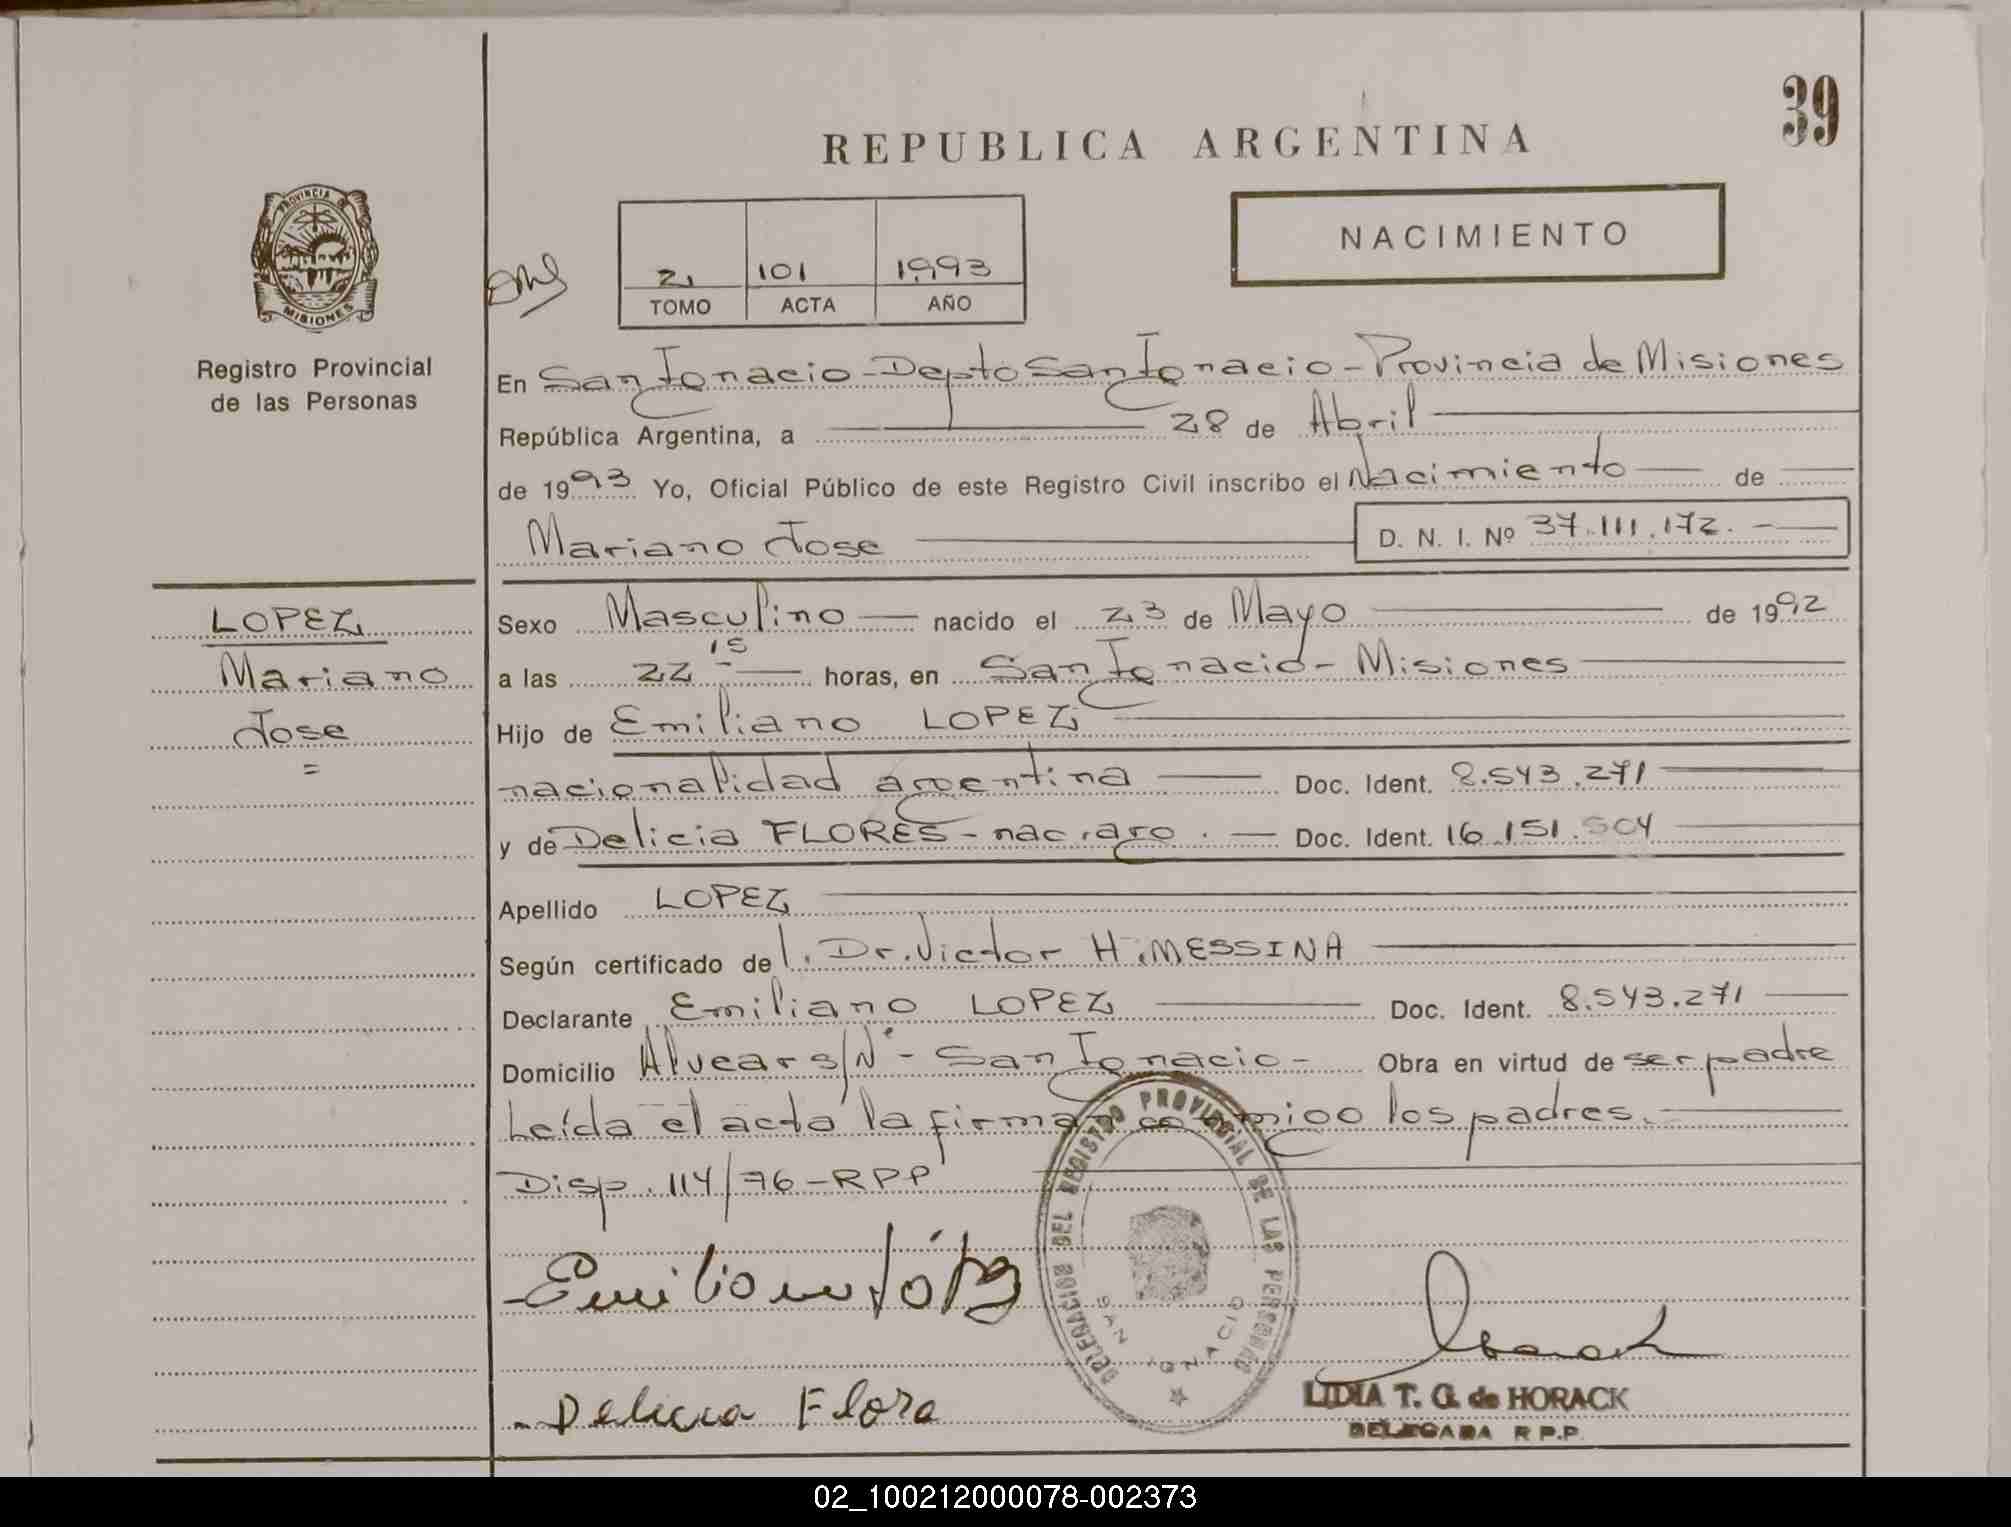 39
REPUBLICA ARGENTINA
PROVINCIA DE
MISIONES
Registro Provincial
de las Personas
2 101 1993
TOMO ACTA AÑO
NACIMIENTO
En San Ignacio - Depto San Ignacio - Provincia de Misiones
República Argentina, a 28 de Abril
de 1993 Yo, Oficial Público de este Registro Civil inscribo el Nacimiento de
Mariano Jose D. N. I. Nº 37.111.172.-
LOPEZ
Mariano
Jose
=
Sexo Masculino nacido el 23 de Mayo de 1992
a las 22 15 horas, en San Ignacio - Misiones
Hijo de Emiliano LOPEZ
nacionalidad argentina Doc. Ident. 8.543.271
y de Delicia FLORES - nac. arg. Doc. Ident. 16.151.504
Apellido LOPEZ
Según certificado del. Dr. Victor H. MESSINA
Declarante Emiliano LOPEZ Doc. Ident. 8.543.271
Domicilio Alvear s/Nº - San Ignacio - Obra en virtud de ser padre
Leída el acta la firman conmigo los padres.
Disp. 114/76 - RPP
Emiliano López
Delicia Flore
DELEGACION DEL REGISTRO PROVINCIAL DE LAS PERSONAS
SAN IGNACIO
LIDIA T. G. de HORACK
DELEGADA R.P.P.
02_100212000078-002373